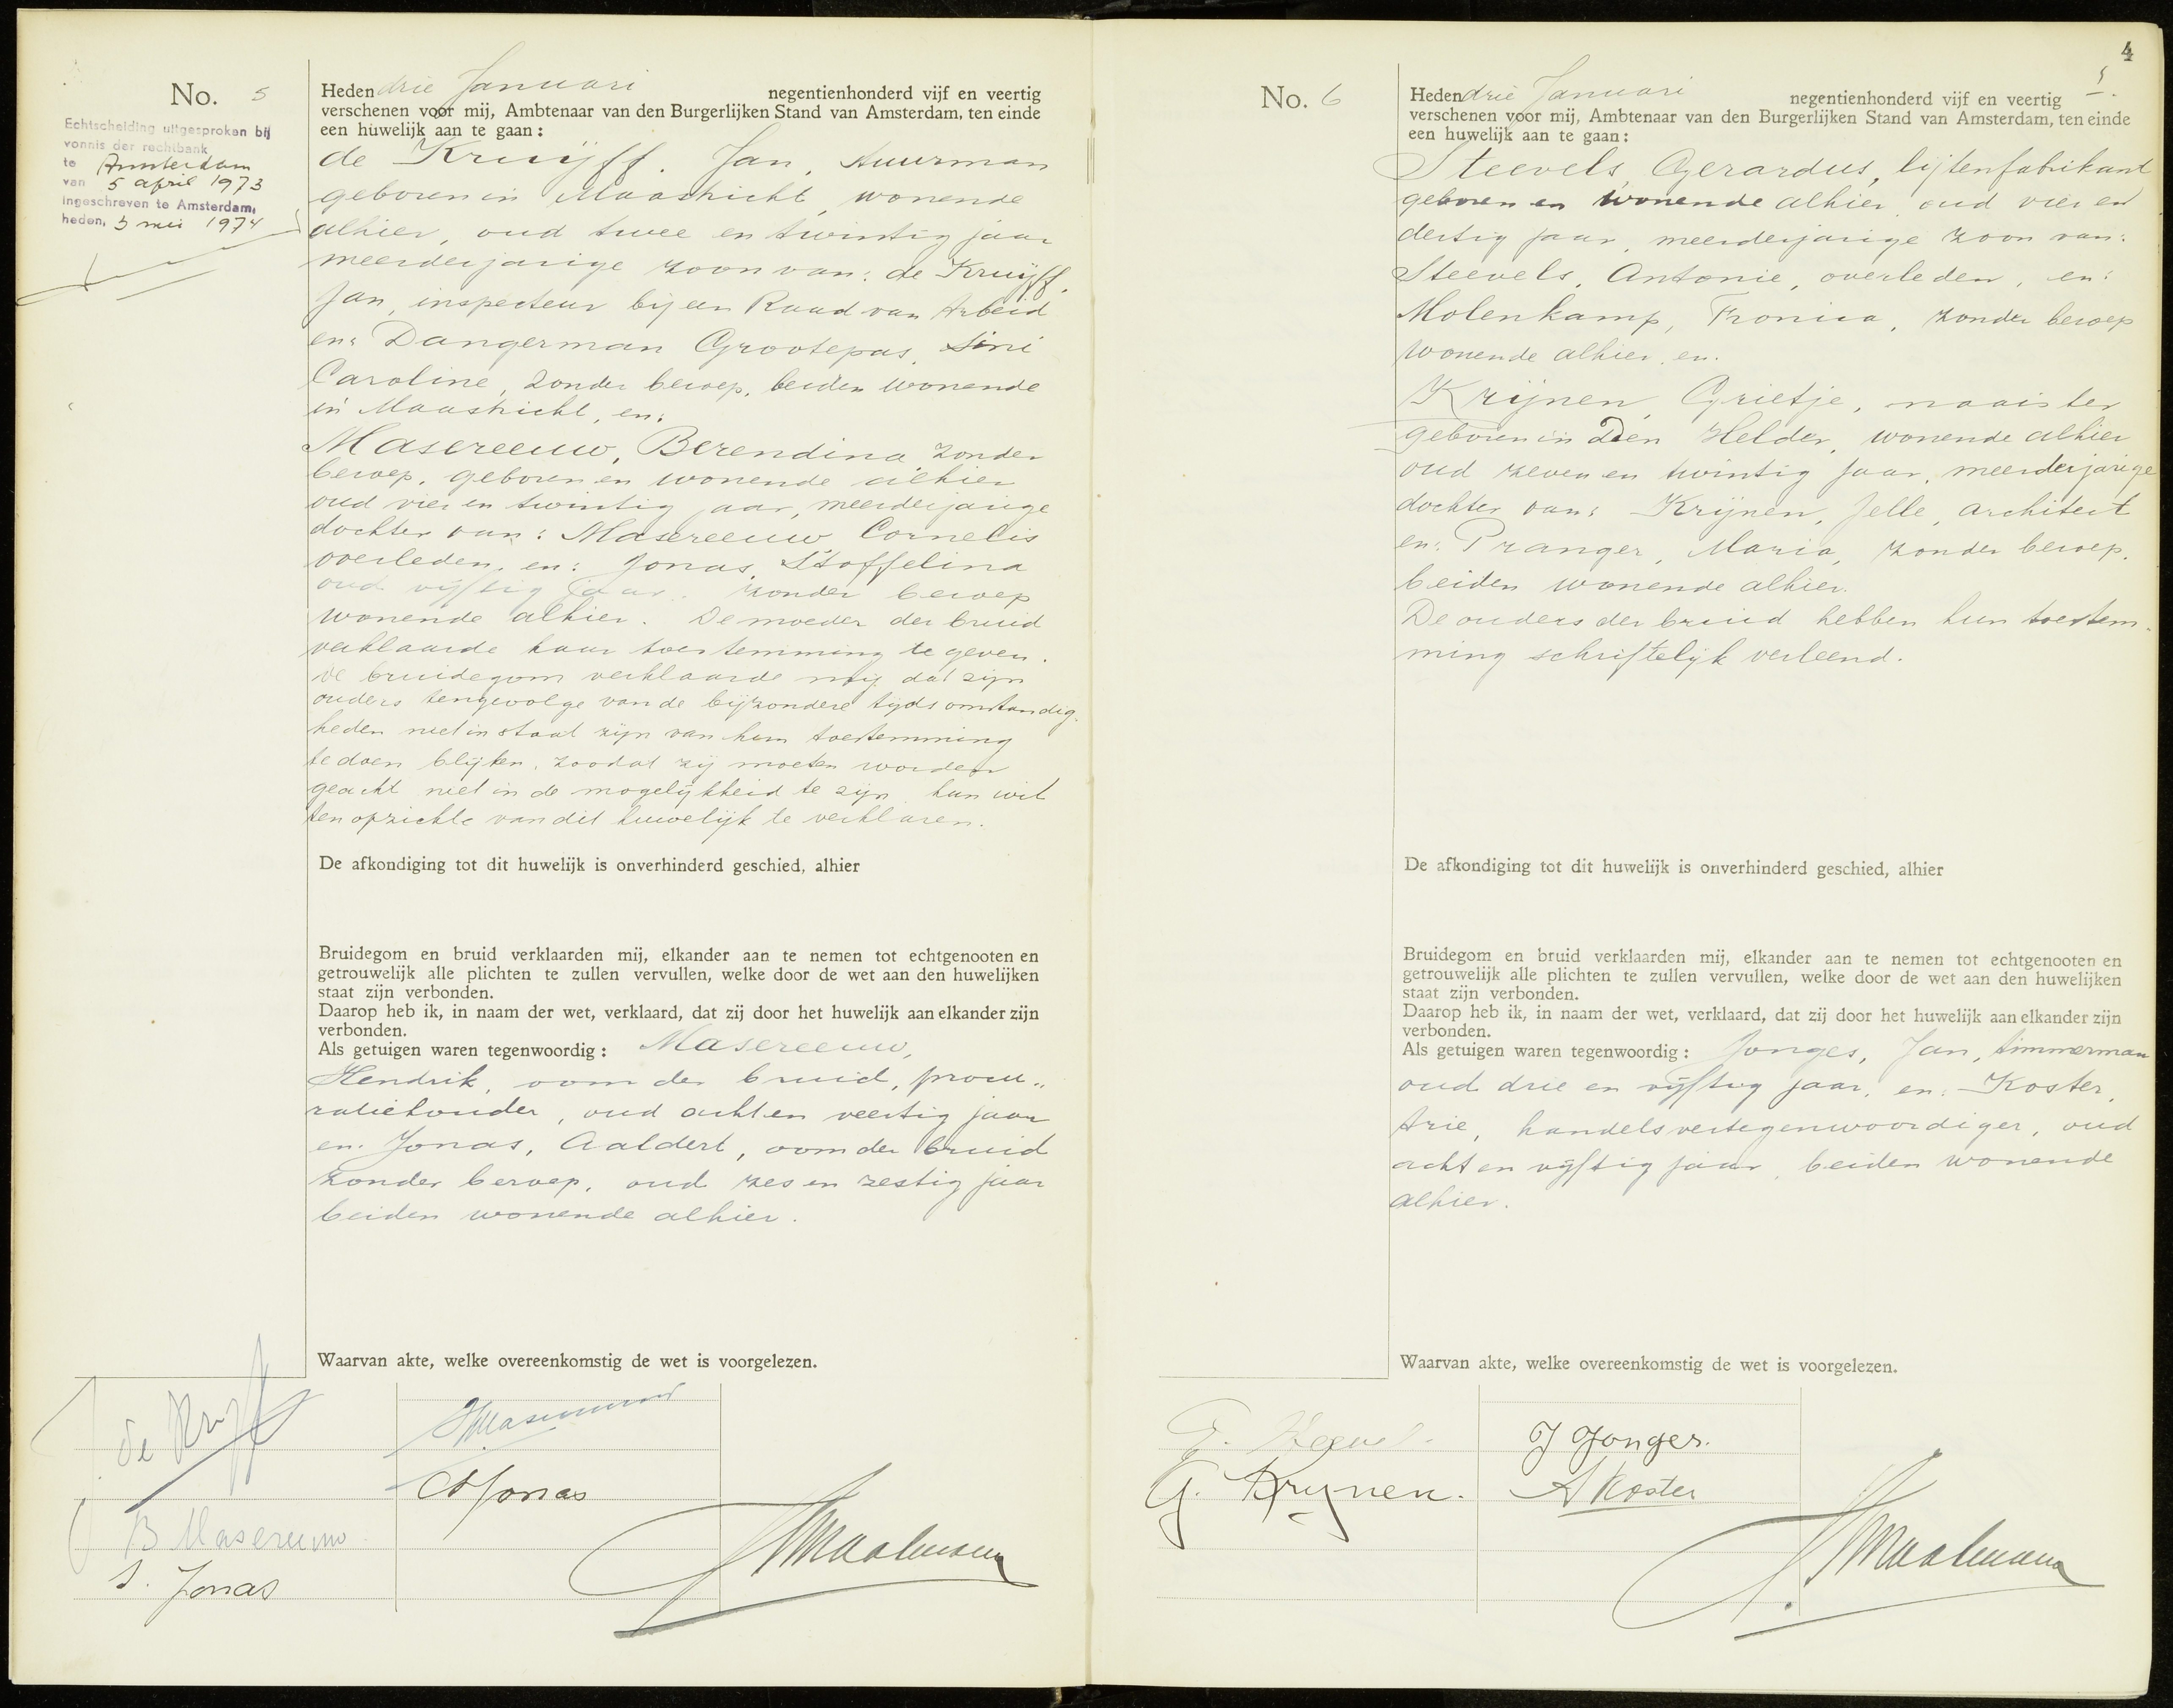 No. 5
Echtscheiding uitgesproken bij
vonnis der rechtbank
te Amsterdam
van 5 april 1973
ingeschreven te Amsterdam,
heden, 3 mei 1974
Heden drie Januari negentienhonderd vijf en veertig
verschenen voor mij, Ambtenaar van den Burgerlijken Stand van Amsterdam, ten einde
een huwelijk aan te gaan:
de Kruijff, Jan, stuurman
geboren in Maastricht, wonende
alhier, oud twee en twintig jaar
meerderjarige zoon van: de Kruijff,
Jan, inspecteur bij een Raad van Arbeid
en: Dangerman Grootepas, Sini
Caroline, zonder beroep, beiden wonende
in Maastricht, en:
Masereeuw, Berendina, zonder
beroep, geboren en wonende alhier
oud vier en twintig jaar, meerderjarige
dochter van: Masereeuw, Cornelis
overleden, en: Jonas, Stoffelina
oud vijftig jaar, zonder beroep
wonende alhier. De moeder der bruid
verklaarde haar toestemming te geven.
De bruidegom verklaarde mij dat zijn
ouders tengevolge van de bijzondere tijdsomstandig-
heden niet in staat zijn van hun toestemming
te doen blijken, zoodat zij moeten worden
geacht niet in de mogelijkheid te zijn hun wil
ten opzichte van dit huwelijk te verklaren.
De afkondiging tot dit huwelijk is onverhinderd geschied, alhier
Bruidegom en bruid verklaarden mij, elkander aan te nemen tot echtgenooten en
getrouwelijk alle plichten te zullen vervullen, welke door de wet aan den huwelijken
staat zijn verbonden.
Daarop heb ik, in naam der wet, verklaard, dat zij door het huwelijk aan elkander zijn
verbonden.
Als getuigen waren tegenwoordig: Masereeuw,
Hendrik, oom der bruid, procu-
ratiehouder, oud acht en veertig jaar
en: Jonas, Aaldert, oom der bruid
zonder beroep, oud zes en zestig jaar
beiden wonende alhier.
Waarvan akte, welke overeenkomstig de wet is voorgelezen.
J. de Kruijff
B Masereeuw
S. Jonas
H Masereeuw
A Jonas
4
5.
No. 6
Heden drie Januari negentienhonderd vijf en veertig
verschenen voor mij, Ambtenaar van den Burgerlijken Stand van Amsterdam, ten einde
een huwelijk aan te gaan:
Steevels, Gerardus, lijstenfabrikant
geboren en wonende alhier, oud vier en
dertig jaar, meerderjarige zoon van:
Steevels, Antonie, overleden, en:
Molenkamp, Fronica, zonder beroep
wonende alhier, en:
Krijnen, Grietje, naaister
geboren in Den Helder, wonende alhier
oud zeven en twintig jaar, meerderjarige
dochter van: Krijnen, Jelle, architect
en: Pranger, Maria, zonder beroep,
beiden wonende alhier.
De ouders der bruid hebben hun toestem-
ming schriftelijk verleend.
De afkondiging tot dit huwelijk is onverhinderd geschied, alhier
Bruidegom en bruid verklaarden mij, elkander aan te nemen tot echtgenooten en
getrouwelijk alle plichten te zullen vervullen, welke door de wet aan den huwelijken
staat zijn verbonden.
Daarop heb ik, in naam der wet, verklaard, dat zij door het huwelijk aan elkander zijn
verbonden.
Als getuigen waren tegenwoordig: Jonges, Jan, timmerman
oud drie en vijftig jaar, en: Koster,
Arie, handelsvertegenwoordiger, oud
acht en vijftig jaar, beiden wonende
alhier.
Waarvan akte, welke overeenkomstig de wet is voorgelezen.
G. Steevels.
G. Krynen.
J Jonges.
A Koster